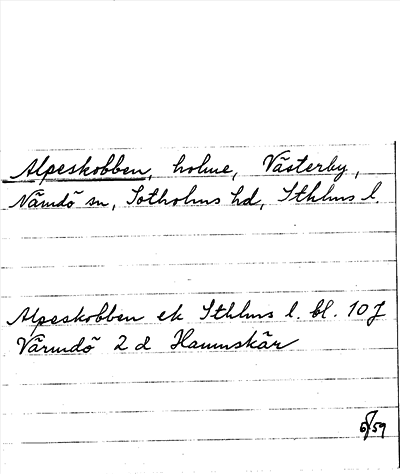 Alpeskobben, holme, Västerby,
Nämdö sn, Sotholms hd, Sthlms l.
Alpeskobben ek Sthlms l. bl. 10 J
Värmdö 2 d Hamnskär